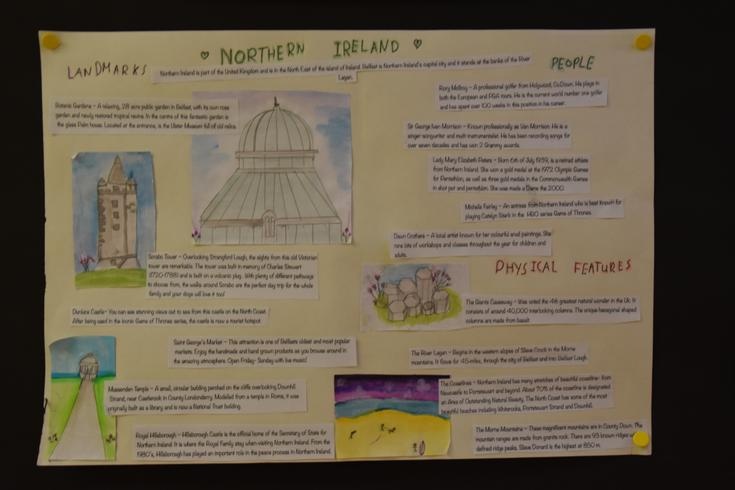 NORTHERN IRELAND
LANDMARKS
PEOPLE
Northern Ireland is part of the United Kingdom and is in the North East of the island of Ireland. Belfast is Northern Ireland's capital city and it stands at the banks of the River
Lagan.
Botanic Gardens – A relaxing, 28 acre public garden in Belfast, with its own rose
garden and newly restored tropical ravine. In the centre of this fantastic garden is
the glass Palm house. Located at the entrance, is the Ulster Museum full of old relics.
Scrabo Tower – Overlooking Strangford Lough, the sights from this old Victorian
tower are remarkable. The tower was built in memory of Charles Stewart
and is built on a volcanic plug. With plenty of different pathways
to choose from, the walks around Scrabo are the perfect day trip for the whole
family and your dogs will love it too!
Dunluce Castle- You can see stunning views out to sea from this castle on the North Coast.
After being used in the iconic Game of Thrones series, the castle is now a tourist hotspot.
Saint George's Market – This attraction is one of Belfasts oldest and most popular
markets. Enjoy the handmade and hand grown products as you browse around in
the amazing atmosphere. Open Friday- Sunday with live music!
Mussenden Temple – A small, circular building perched on the cliffs overlooking Downhill
Strand, near Castlerock in County Londonderry. Modelled from a temple in Rome, it was
originally built as a library and is now a National Trust building.
Royal Hillsborough – Hillsborough Castle is the official home of the Secretary of State for
Northern Ireland. It is where the Royal Family stay when visiting Northern Ireland. From the
1980's, Hillsborough has played an important role in the peace process in Northern Ireland.
Rory McIlroy – A professional golfer from Holywood, Co.Down. He plays in
both the European and PGA tours. He is the current world number one golfer
and has spent over 100 weeks in this position in his career.
Sir George Ivan Morrison – Known professionally as Van Morrison. He is a
singer-songwriter and multi instrumentalist. He has been recording songs for
over seven decades and has won 2 Grammy awards.
Lady Mary Elizabeth Peters – Born 6th of July 1939, is a retired athlete
from Northern Ireland. She won a gold medal at the 1972 Olympic Games
for Pentathlon, as well as three gold medals in the Commonwealth Games
in shot put and pentathlon. She was made a Dame the 2000.
Michelle Fairley – An actress from Northern Ireland who is best known for
playing Catelyn Stark in the HBO series Game of Thrones.
Dawn Crothers – A local artist known for her colourful and paintings. She
runs lots of workshops and classes throughout the year for children and
adults.
PHYSICAL FEATURES
The Giants Causeway – Was voted the 4th greatest natural wonder in the Uk. It
consists of around 40,000 interlocking columns. The unique hexagonal shaped
columns are made from basalt.
The River Lagan – Begins in the western slopes of Slieve Croob in the Mourne
mountains. It flows for 45 miles, through the city of Belfast and into Belfast Lough.
The Coastlines – Northern Ireland has many stretches of beautiful coastline- from
Newcastle to Portstewart and beyond. About 70% of the coastline is designated
an Area of Outstanding Natural Beauty. The North Coast has some of the most
beautiful beaches including Whiterocks, Portstewart Strand and Downhill.
The Mourne Mountains – These magnificent mountains are in County Down. The
mountain ranges are made from granite rock. There are 93 known ridges
defined ridge peaks. Slieve Donard is the highest at 850 m.